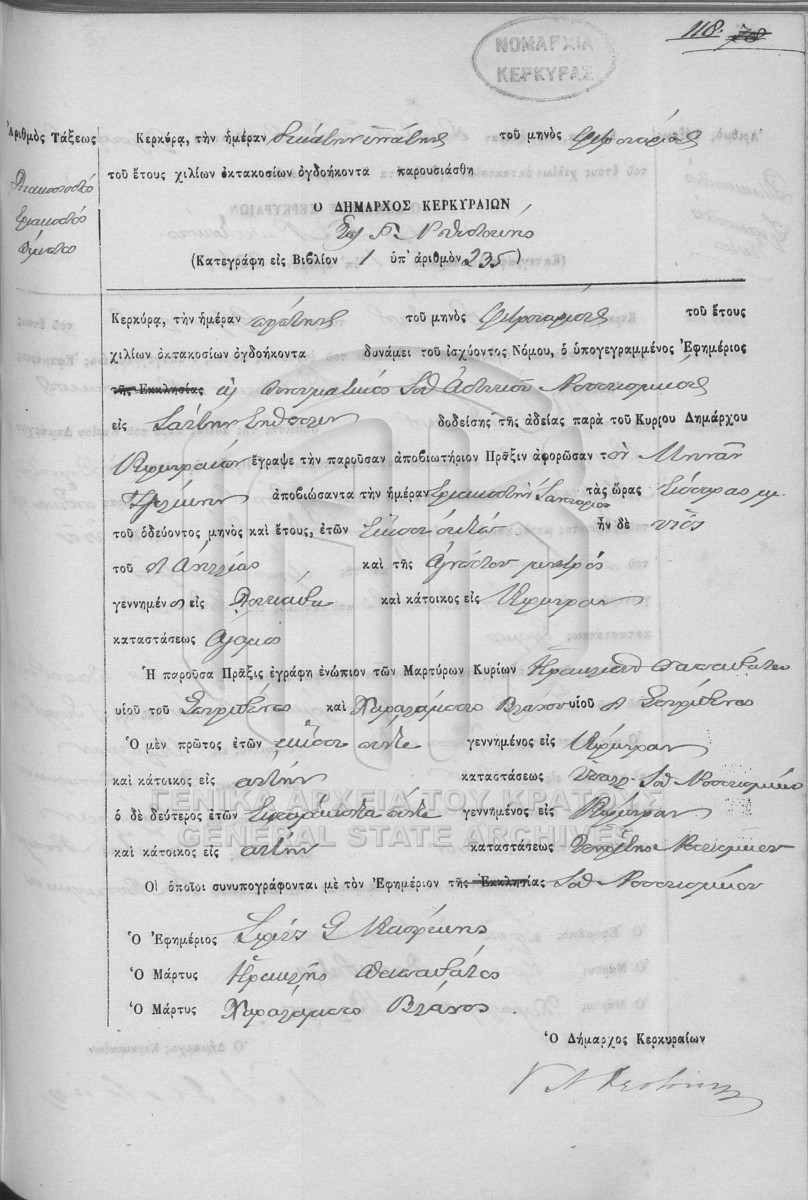 118. 78
ΝΟΜΑΡΧΙΑ
ΚΕΡΚΥΡΑΣ
Ἀριθμὸς Τάξεως
Διακοσιοστὸ
τριακοστὸ
πέμπτο
Κερκύρᾳ, τὴν ἡμέραν δεκάτην τοῦ μηνὸς Φεβρουαρίου
τοῦ ἔτους χιλίων ὀκτακοσίων ὀγδοήκοντα παρουσιάσθη
Ο ΔΗΜΑΡΧΟΣ ΚΕΡΚΥΡΑΙΩΝ
(Κατεγράφη εἰς Βιβλίον 1 ὑπ' ἀριθμὸν 235)
Κερκύρᾳ, τὴν ἡμέραν πρώτην τοῦ μηνὸς Φεβρουαρίου τοῦ ἔτους
χιλίων ὀκτακοσίων ὀγδοήκοντα δυνάμει τοῦ ἰσχύοντος Νόμου, ὁ ὑπογεγραμμένος Ἐφημέριος
τῆς Ἐκκλησίας πνευματικὸς τοῦ Ἀστικοῦ Νοσοκομείου
εἰς δοθείσης τῆς ἀδείας παρὰ τοῦ Κυρίου Δημάρχου
Κερκυραίων ἔγραψε τὴν παροῦσαν ἀποβιωτήριον Πρᾶξιν ἀφορῶσαν τὸν Μηνᾶν
ἀποβιώσαντα τὴν ἡμέραν τριακοστὴν Ἰανουαρίου τὰς ὥρας τέσσαρας μ.μ.
τοῦ ὁδεύοντος μηνὸς καὶ ἔτους, ἐτῶν εἴκοσι ὀκτὼ ἦν δὲ υἱὸς
τοῦ π Ἀντωνίου καὶ τῆς ἀγνώστου μητρὸς
γεννημένος εἰς καὶ κάτοικος εἰς Κέρκυραν
καταστάσεως ἄγαμος
Ἡ παροῦσα Πρᾶξις ἐγράφη ἐνώπιον τῶν Μαρτύρων Κυρίων Ἡρακλέους
υἱοῦ τοῦ Σπυρίδωνος καὶ Χαράλαμπος Βλάχου υἱοῦ π Σπυρίδωνος
Ὁ μὲν πρῶτος ἐτῶν εἴκοσι πέντε γεννημένος εἰς Κέρκυραν
καὶ κάτοικος εἰς αὐτὴν καταστάσεως Ὑπάλ. τοῦ Νοσοκομείου
ὁ δὲ δεύτερος ἐτῶν τεσσαράκοντα πέντε γεννημένος εἰς Κέρκυραν
καὶ κάτοικος εἰς αὐτὴν καταστάσεως Ὑπηρέτης Νοσοκομείου
Οἱ ὁποῖοι συνυπογράφονται μὲ τὸν Ἐφημέριον τῆς Ἐκκλησίας τοῦ Νοσοκομείου
Ὁ Ἐφημέριος
Ὁ Μάρτυς Ἡρακλῆς
Ὁ Μάρτυς Χαράλαμπος Βλάχος
Ὁ Δήμαρχος Κερκυραίων
ΓΕΝΙΚΑ ΑΡΧΕΙΑ ΤΟΥ ΚΡΑΤΟΥΣ
GENERAL STATE ARCHIVES